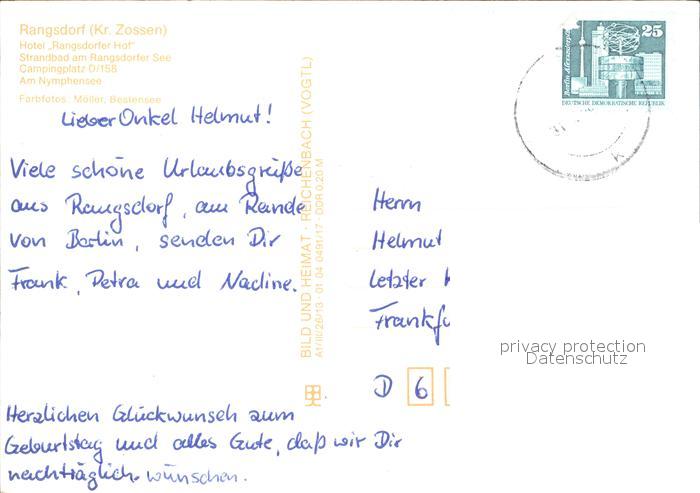 Rangsdorf (Kr. Zossen)
Hotel „Rangsdorfer Hof"
Strandbad am Rangsdorfer See
Campingplatz D/158
Am Nymphensee
Farbfotos: Möller, Bestensee
Lieber Onkel Helmut!
Viele schöne Urlaubsgrüße
aus Rangsdorf, am Rande
von Berlin, senden Dir
Frank, Petra und Nadine.
Herzlichen Glückwunsch zum
Geburtstag und alles Gute, daß wir Dir
nachträglich wünschen.
BILD UND HEIMAT · REICHENBACH (VOGTL)
A1/III/26/13 · 01 04 0491/17 · DDR 0,20 M
Berlin Alexanderplatz
25
DEUTSCHE DEMOKRATISCHE REPUBLIK
Herrn
Helmut
Letzter
Frankfu
D 6
privacy protection
Datenschutz